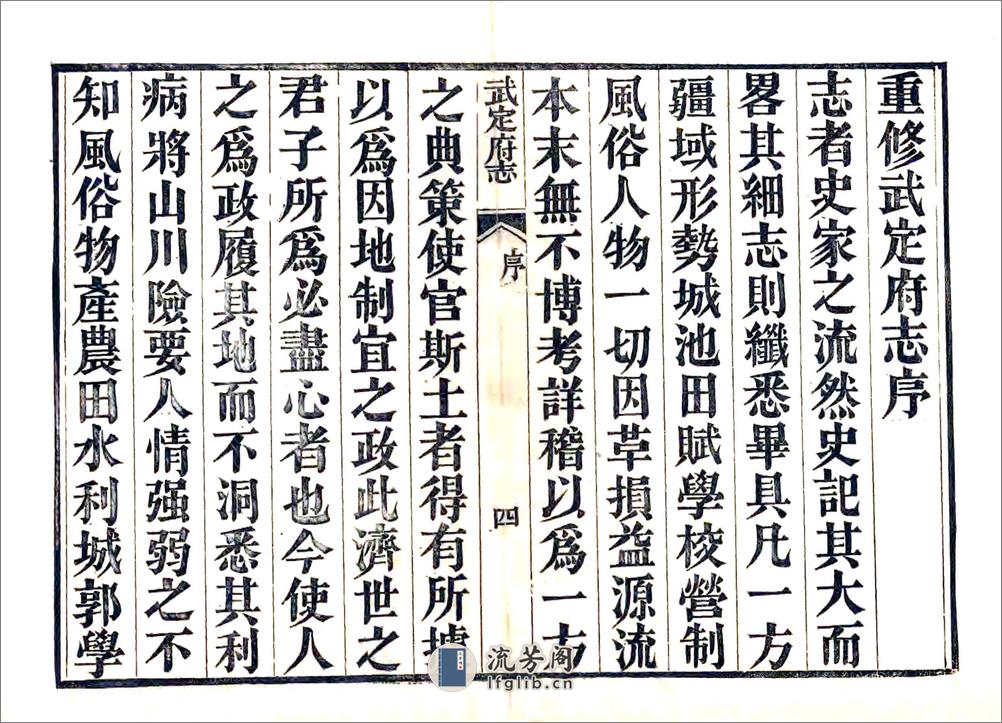 重修武定府志序
志者史家之流然史記其大而
畧其細志則纖悉畢具凡一方
疆域形勢城池田賦學校營制
風俗人物一切因革損益源流
本末無不博考詳稽以爲一方
武定府志 序 四
之典策使官斯土者得有所據
以爲因地制宜之政此濟世之
君子所爲必盡心者也今使人
之爲政履其地而不洞悉其利
病將山川險要人情强弱之不
知風俗物產農田水利城郭學
流芳阁
lfglib.cn